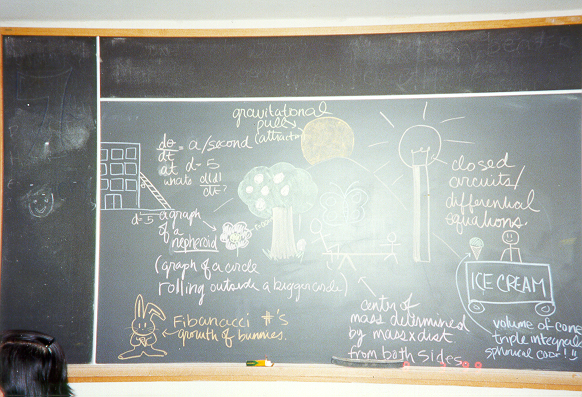 gravitational
pull
(attraction
dθ/dt = a/second
at d=5
whats d(d)/dt?
d=5
a graph
of a
nephroid
(graph of a circle
rolling outside a bigger circle)
closed
circuits/
differential
equations.
ICE CREAM
Fibanacci #'s
growth of bunnies.
center of
mass determined
by mass x dist.
from both sides
volume of cone
triple integral
spherical coor!!